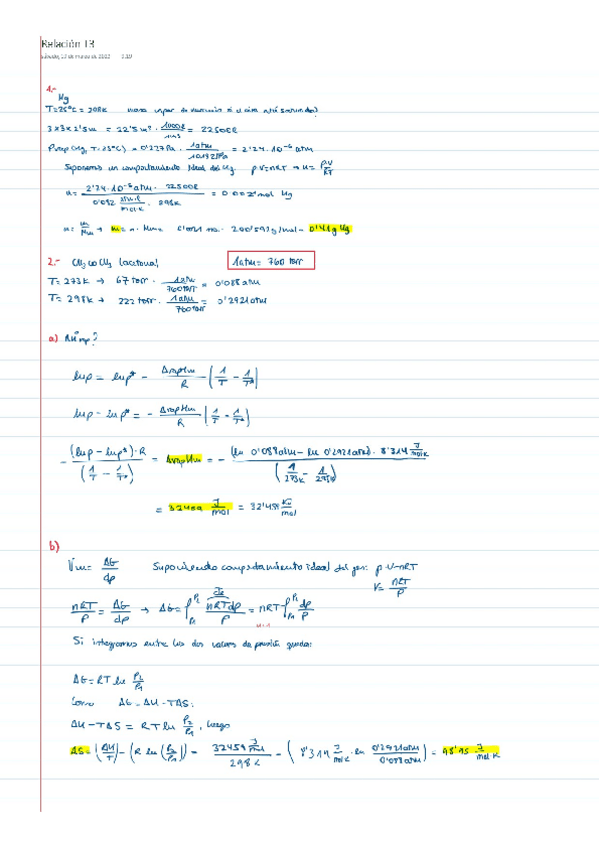 Relación 13
sábado, 12 de marzo de 2022
1.- Hg
T=25°C = 298K masa vapor de mercurio si el aire está saturado?
3x3x2'5m = 22'5m³ · 1000ℓ/1m³ = 22500ℓ
Pvap(Hg, T=25°C) = 0'227Pa · 1atm/101325Pa = 2'24·10⁻⁶ atm
Suponemos un comportamiento ideal del Hg. pV=nRT → n = p·V/RT
n = 2'24·10⁻⁶atm · 22500ℓ / 0'082 atm·ℓ/mol·K · 298K = 0'0021mol Hg
n = m/Mm → m = n·Mm = 0'0021 mol · 200'592g/mol = 0'41g Hg
2.- CH₃COCH₃ (acetona) 1atm = 760 torr
T= 273K → 67 torr · 1atm/760torr = 0'088 atm
T= 298K → 222 torr · 1atm/760torr = 0'2921atm
a) ΔHvap?
ln p = ln p* - ΔvapHm/R · (1/T - 1/T*)
ln p - ln p* = - ΔvapHm/R (1/T - 1/T*)
- (ln p - ln p*)·R / (1/T - 1/T*) = ΔvapHm = - (ln 0'088atm - ln 0'2921atm) · 8'314 J/mol·K / (1/273K - 1/298K)
= 32459 J/mol = 32'459 KJ/mol
b)
Vm = ΔG/dp Suponiendo comportamiento ideal del gas: p·V=nRT
V= nRT/P
nRT/P = ΔG/dp → ΔG = ∫ nRTdp/P = nRT ∫ dp/P
Si integramos entre los dos valores de presión queda:
ΔG = RT ln P₂/P₁
Como ΔG = ΔH - TΔS:
ΔH - TΔS = RT ln P₂/P₁, luego
ΔS = (ΔH/T) - (R ln (P₂/P₁)) = 32459 J/mol / 298K - (8'314 J/mol·K · ln 0'2921atm/0'088atm) = 98'95 J/mol·K